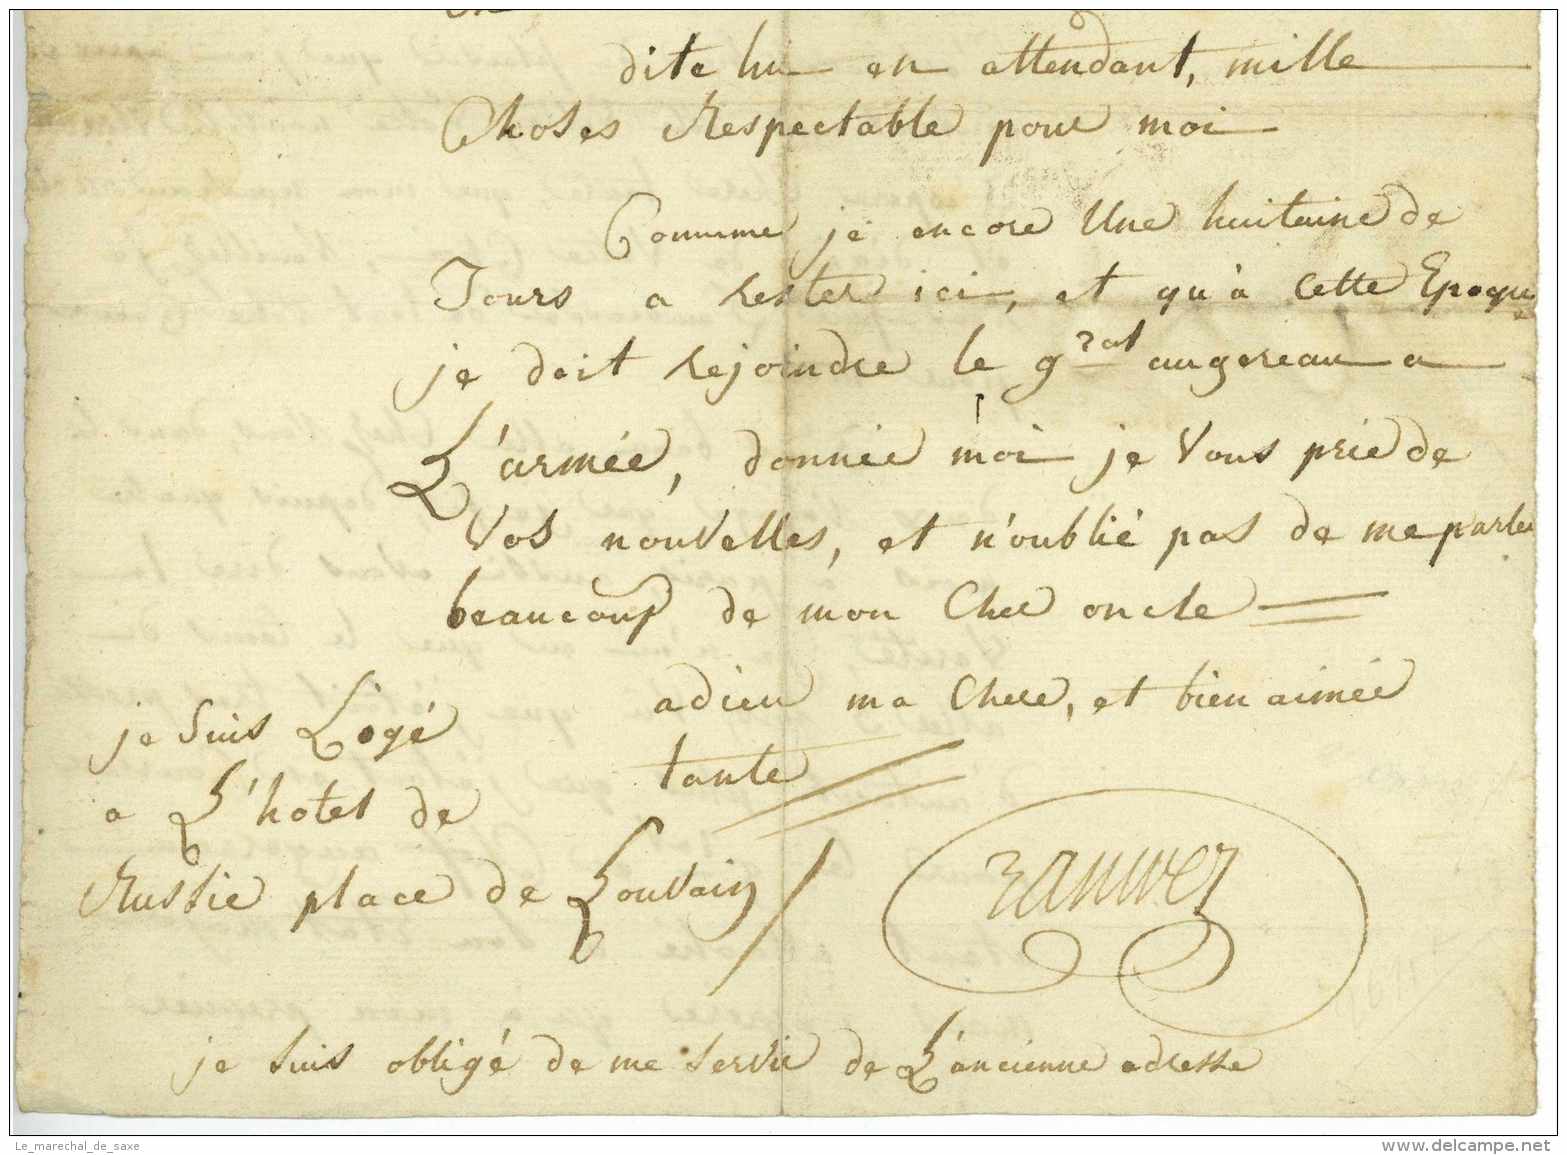 dite lui en attendant, mille
Choses Respectable pour moi
Comme je encore Une huitaine de
Jours a rester ici, et qu'à cette Epoque
je doit rejoindre le gral augereau a
L'armée, donnée moi je Vous prie de
Vos nouvelles, et n'oublié pas de me parler
beaucoup de mon Cher oncle
adieu ma Chere, et bien aimée
tante
je suis Logé
a L'hotel de
Russie place de Louvain
Rauwez
je suis obligé de me servir de L'ancienne adresse
Le_marechal_de_saxe
www.delcampe.net